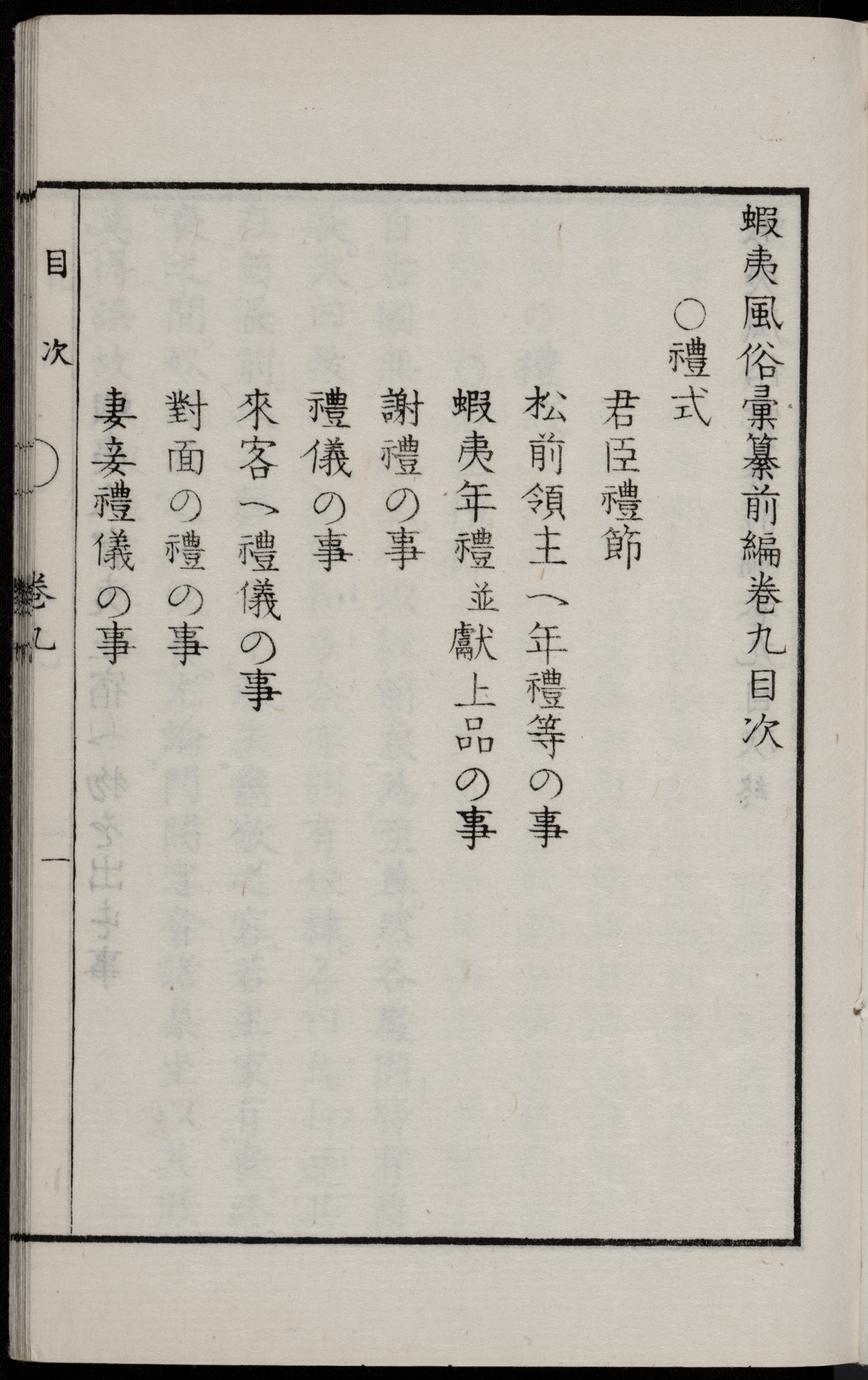 蝦夷風俗彙纂前編卷九目次
○禮式
君臣禮節
松前領主へ年禮等の事
蝦夷年禮並獻上品の事
謝禮の事
禮儀の事
來客へ禮儀の事
對面の禮の事
妻妾禮儀の事
目次 ○ 卷九 一